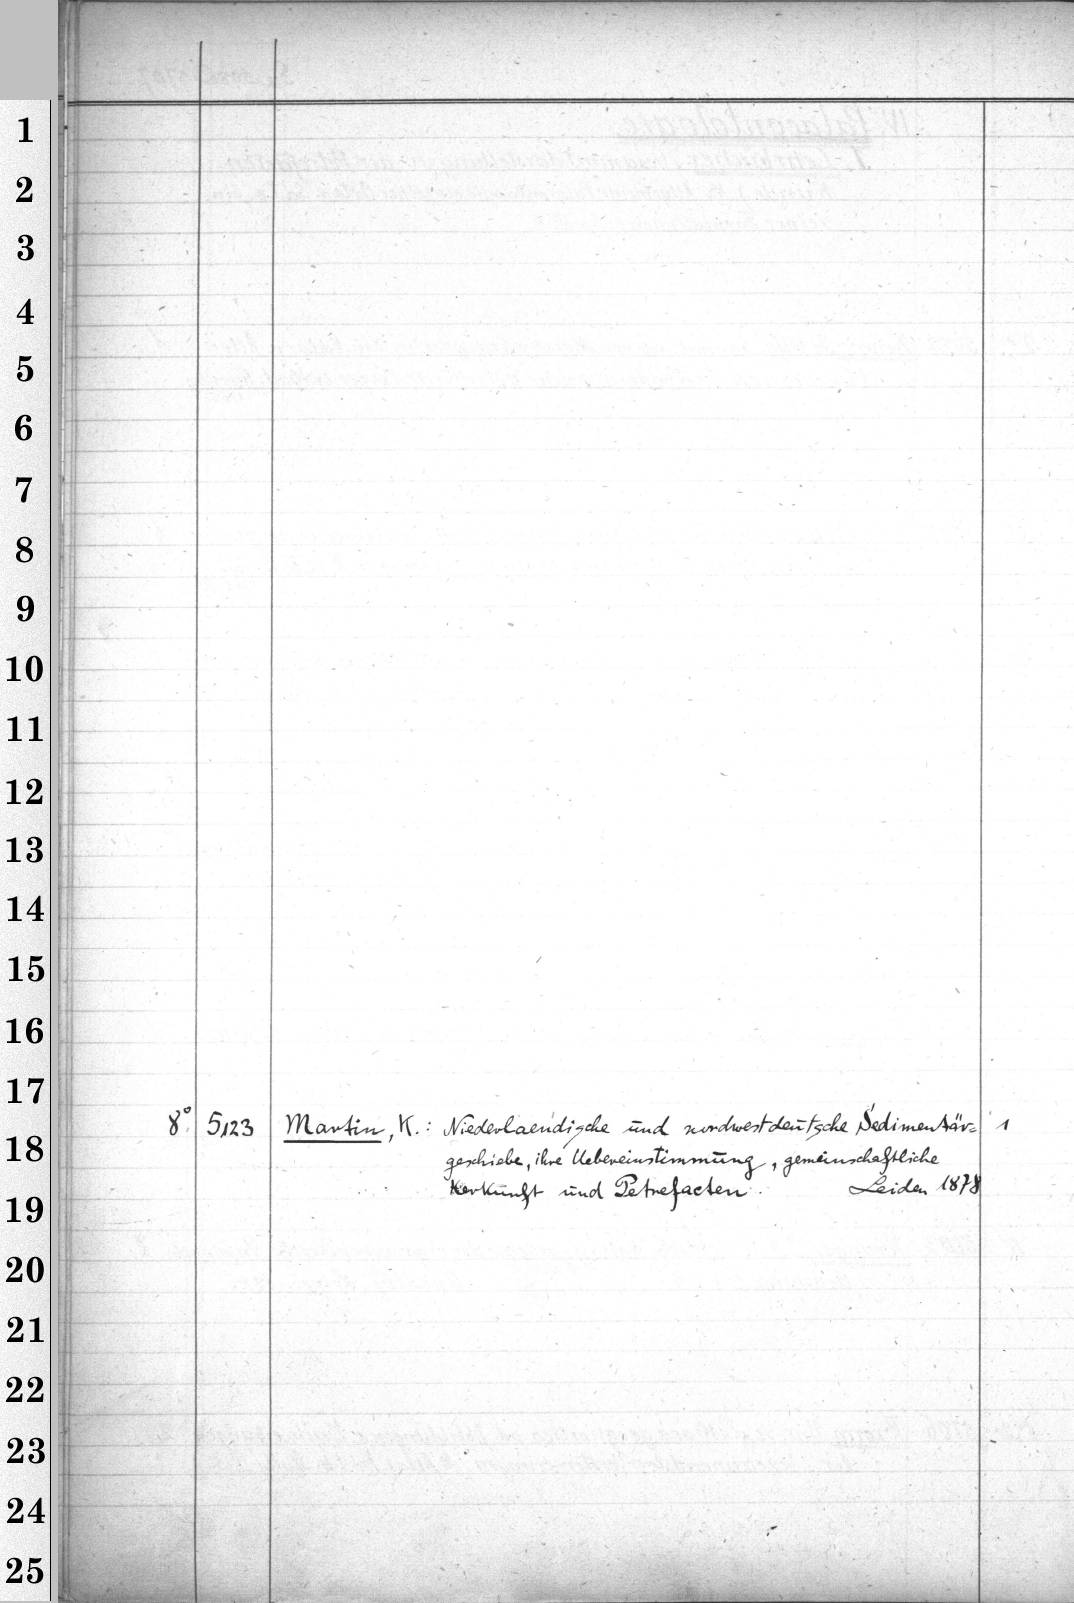 1
2
3
4
5
6
7
8
9
10
11
12
13
14
15
16
17
8° 5123 Martin, K.: Niederlaendische und nordwestdeutsche Sedimentär= 1
18
geschiebe, ihre Uebereinstimmung, gemeinschaftliche
Herkunft und Petrefacten. Leiden 1878
19
20
21
22
23
24
25